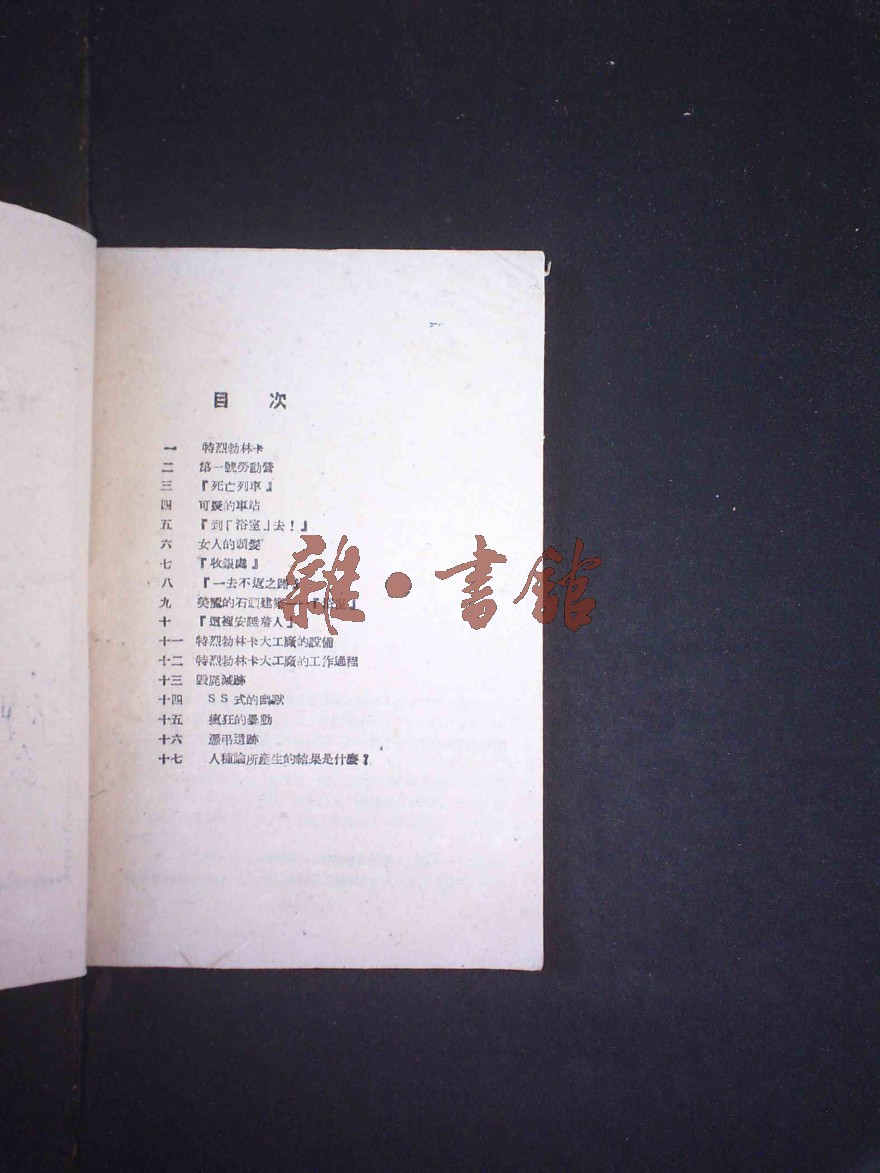 目 次
一 特烈勃林卡
二 第一號勞動營
三 『死亡列車』
四 可疑的車站
五 『到「浴室」去！』
六 女人的頭髮
七 『收銀處』
八 『一去不返之路』
九 美麗的石頭建築——『浴室』
十 『這裡安睡着人』
十一 特烈勃林卡大工廠的設備
十二 特烈勃林卡大工廠的工作過程
十三 毀屍滅跡
十四 SS式的幽默
十五 瘋狂的暴動
十六 憑弔遺跡
十七 人種論所產生的結果是什麼？
雜·書館